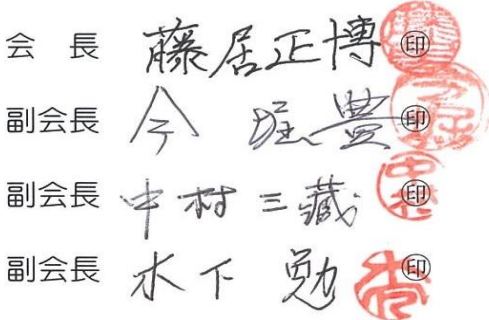 会長 藤居正博 ㊞
副会長 今堀豊 ㊞
副会長 中村三藏 ㊞
副会長 木下勉 ㊞